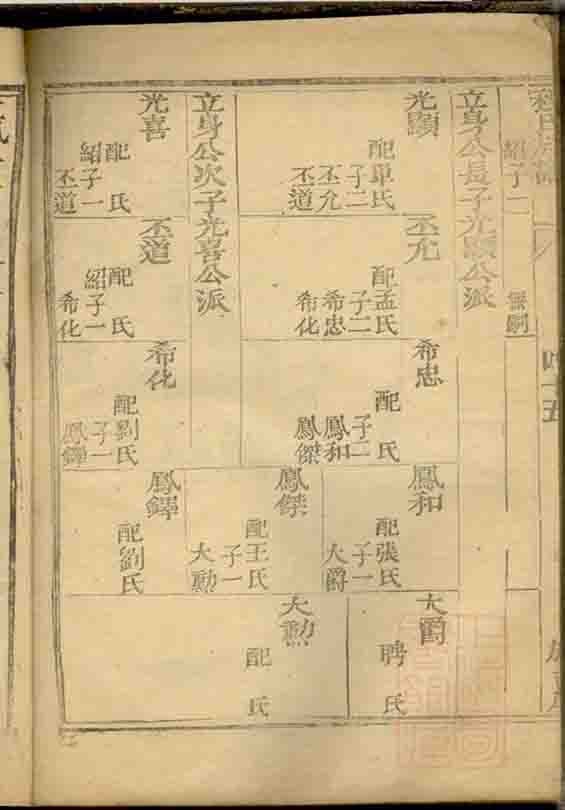 紹子一
無嗣
立身公長子光顯公派
光顯
配單氏
子二
丕允
丕道
丕允
配孟氏
子二
希忠
希化
希忠
配 氏
子二
鳳和
鳳傑
鳳和
配張氏
子一
大爵
大爵
聘 氏
鳳傑
配王氏
子一
大勳
大勲
配 氏
立身公次子光喜公派
光喜
配 氏
紹子一
丕道
丕道
配 氏
紹子一
希化
希化
配劉氏
子一
鳳鐸
鳳鐸
配劉氏